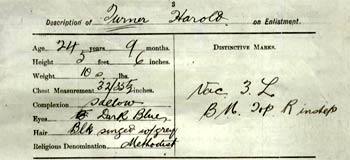 3
Description of Turner Harold on Enlistment.
Age 24 years 9 months. DISTINCTIVE MARKS.
Height 5 feet 6 inches.
Weight 10 s lbs. Vac. 3. L
Chest Measurement 32/35½ inches. B.M. Top R
Complexion Sallow
Eyes Dark Blue
Hair Blk singed w/grey
Religious Denomination Methodist